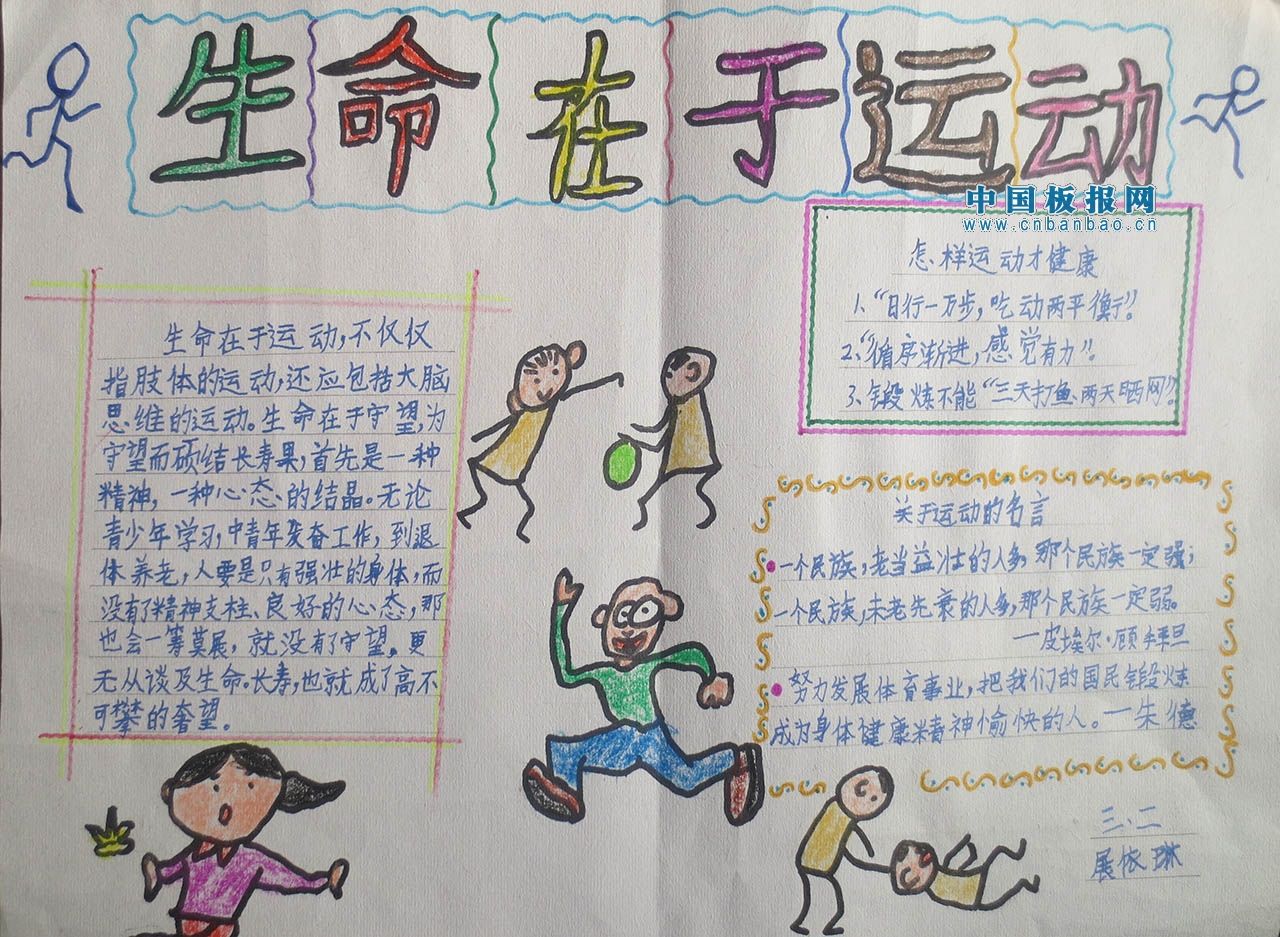 生命在于运动
中国板报网
www.cnbanbao.cn
生命在于运动,不仅仅
指肢体的运动,还应包括大脑
思维的运动。生命在于守望,为
守望而硕结长寿果,首先是一种
精神,一种心态的结晶。无论
青少年学习,中青年发奋工作,到退
休养老,人要是只有强壮的身体,而
没有了精神支柱、良好的心态,那
也会一筹莫展,就没有了守望。更
无从谈及生命。长寿,也就成了高不
可攀的奢望。
怎样运动才健康
1、“日行一万步,吃动两平衡”。
2、“循序渐进,感觉有力”。
3、锻炼不能“三天打鱼、两天晒网”。
关于运动的名言
一个民族,老当益壮的人多,那个民族一定强;
一个民族,未老先衰的人多,那个民族一定弱。
—皮埃尔·顾拜旦
努力发展体育事业,把我们的国民锻炼
成为身体健康精神愉快的人。—朱德
三、二
展依琳